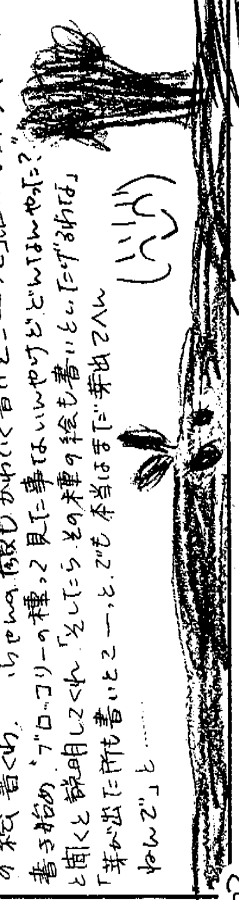 の絵書くわ
書き始め、"ブロッコリーの種って見た事ないんやけどどんなんやった?"
と聞くと説明してくれ、「そしたらその種の絵も書いといたげるわな」
「芽が出た所も書いとこーっと。でも本当はまだ芽出てへん
ねんで」と……